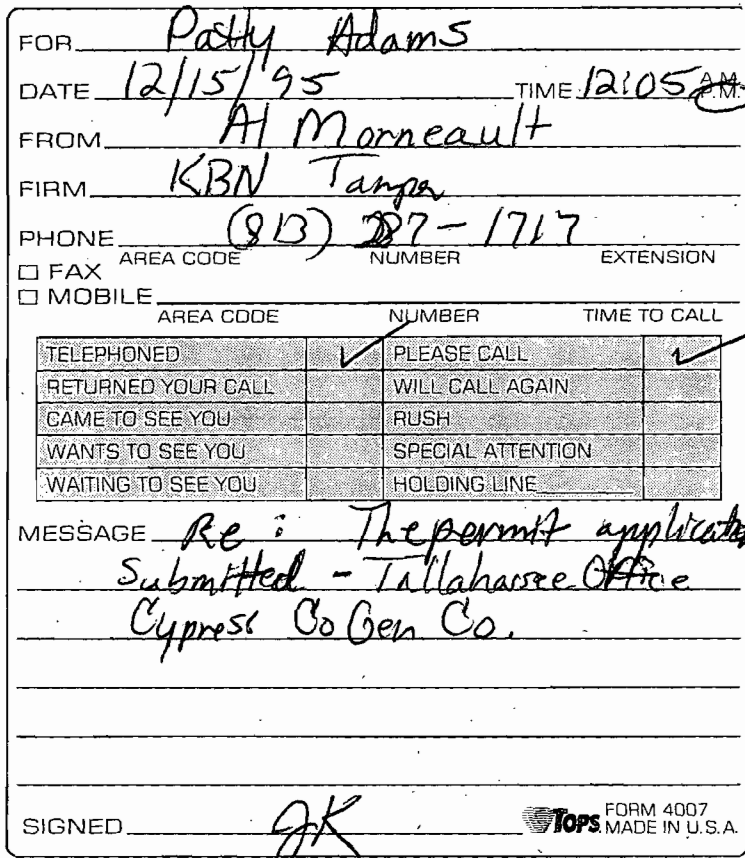 FOR Patty Adams
DATE 12/15/95 TIME 12:05 A.M. P.M.
FROM Al Morneault
FIRM KBN Tampa
PHONE (813) 287-1717
AREA CODE NUMBER EXTENSION
☐ FAX
☐ MOBILE
AREA CODE NUMBER TIME TO CALL
TELEPHONED ✓ PLEASE CALL ✓
RETURNED YOUR CALL WILL CALL AGAIN
CAME TO SEE YOU RUSH
WANTS TO SEE YOU SPECIAL ATTENTION
WAITING TO SEE YOU HOLDING LINE
MESSAGE Re: The permit application
Submitted - Tallahassee Office
Cypress CoGen Co.
SIGNED JK TOPS FORM 4007
MADE IN U.S.A.